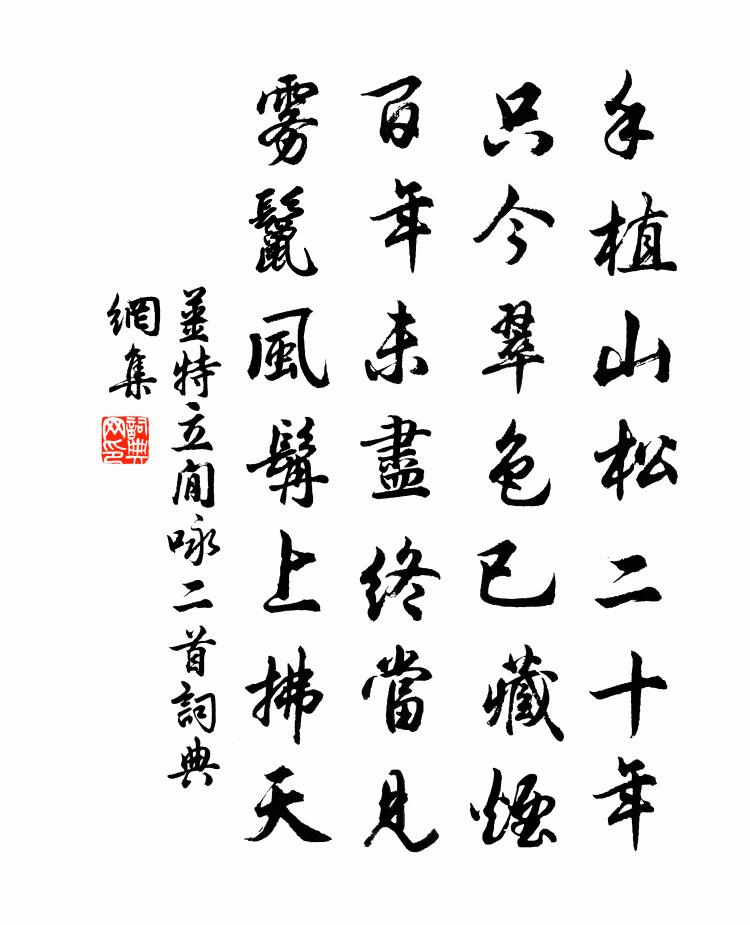 手植山松二十年
只今翠色已藏煙
百年未盡終當見
霧鬣風髯上拂天
姜特立閒咏二首詞典
網集
詞典
网印